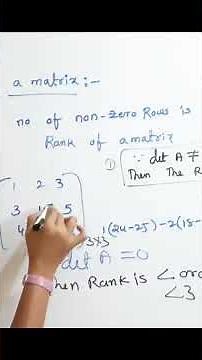 a matrix :-
no of non-zero Rows is
Rank of a matrix
① ∵ det A ≠
Then The R
1 2 3
3 5
4
3×3
1(24-25)-2(18-
det A = 0
then Rank is < ord
< 3